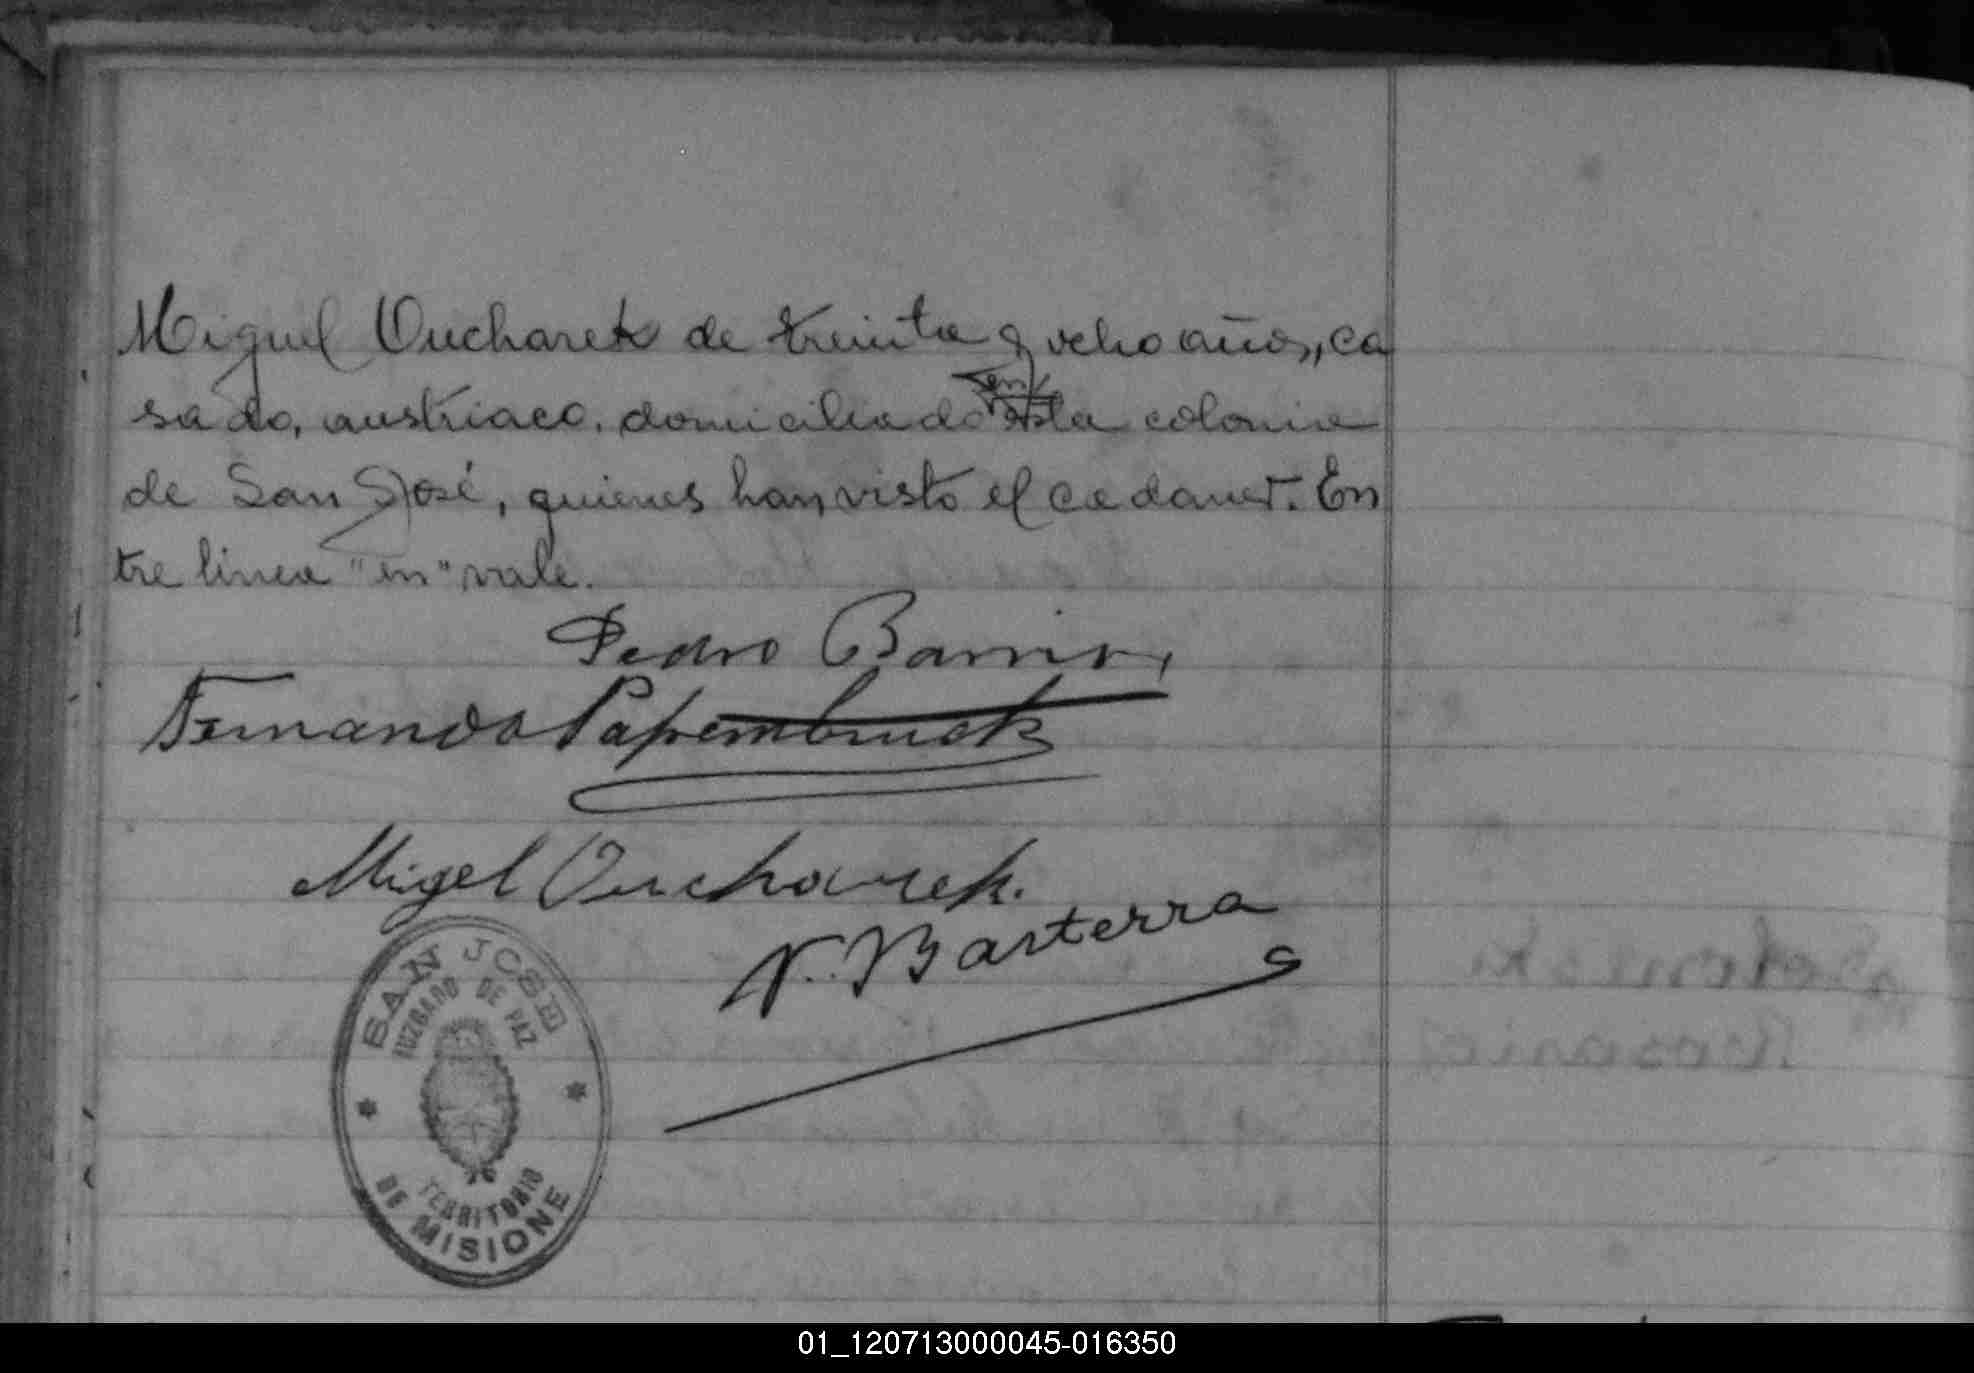 Miguel Oucharek de treinta y ocho años, ca
sado, austriaco, domiciliado en esta colonia
de San José, quienes han visto el cadaver. En
tre linea "en" vale.
Pedro Barrios
Fernando Papembruck
Migel Oucharek.
N. Basterra
SAN JOSE
JUZGADO DE PAZ
TERRITORIO
DE MISIONE
01_120713000045-016350